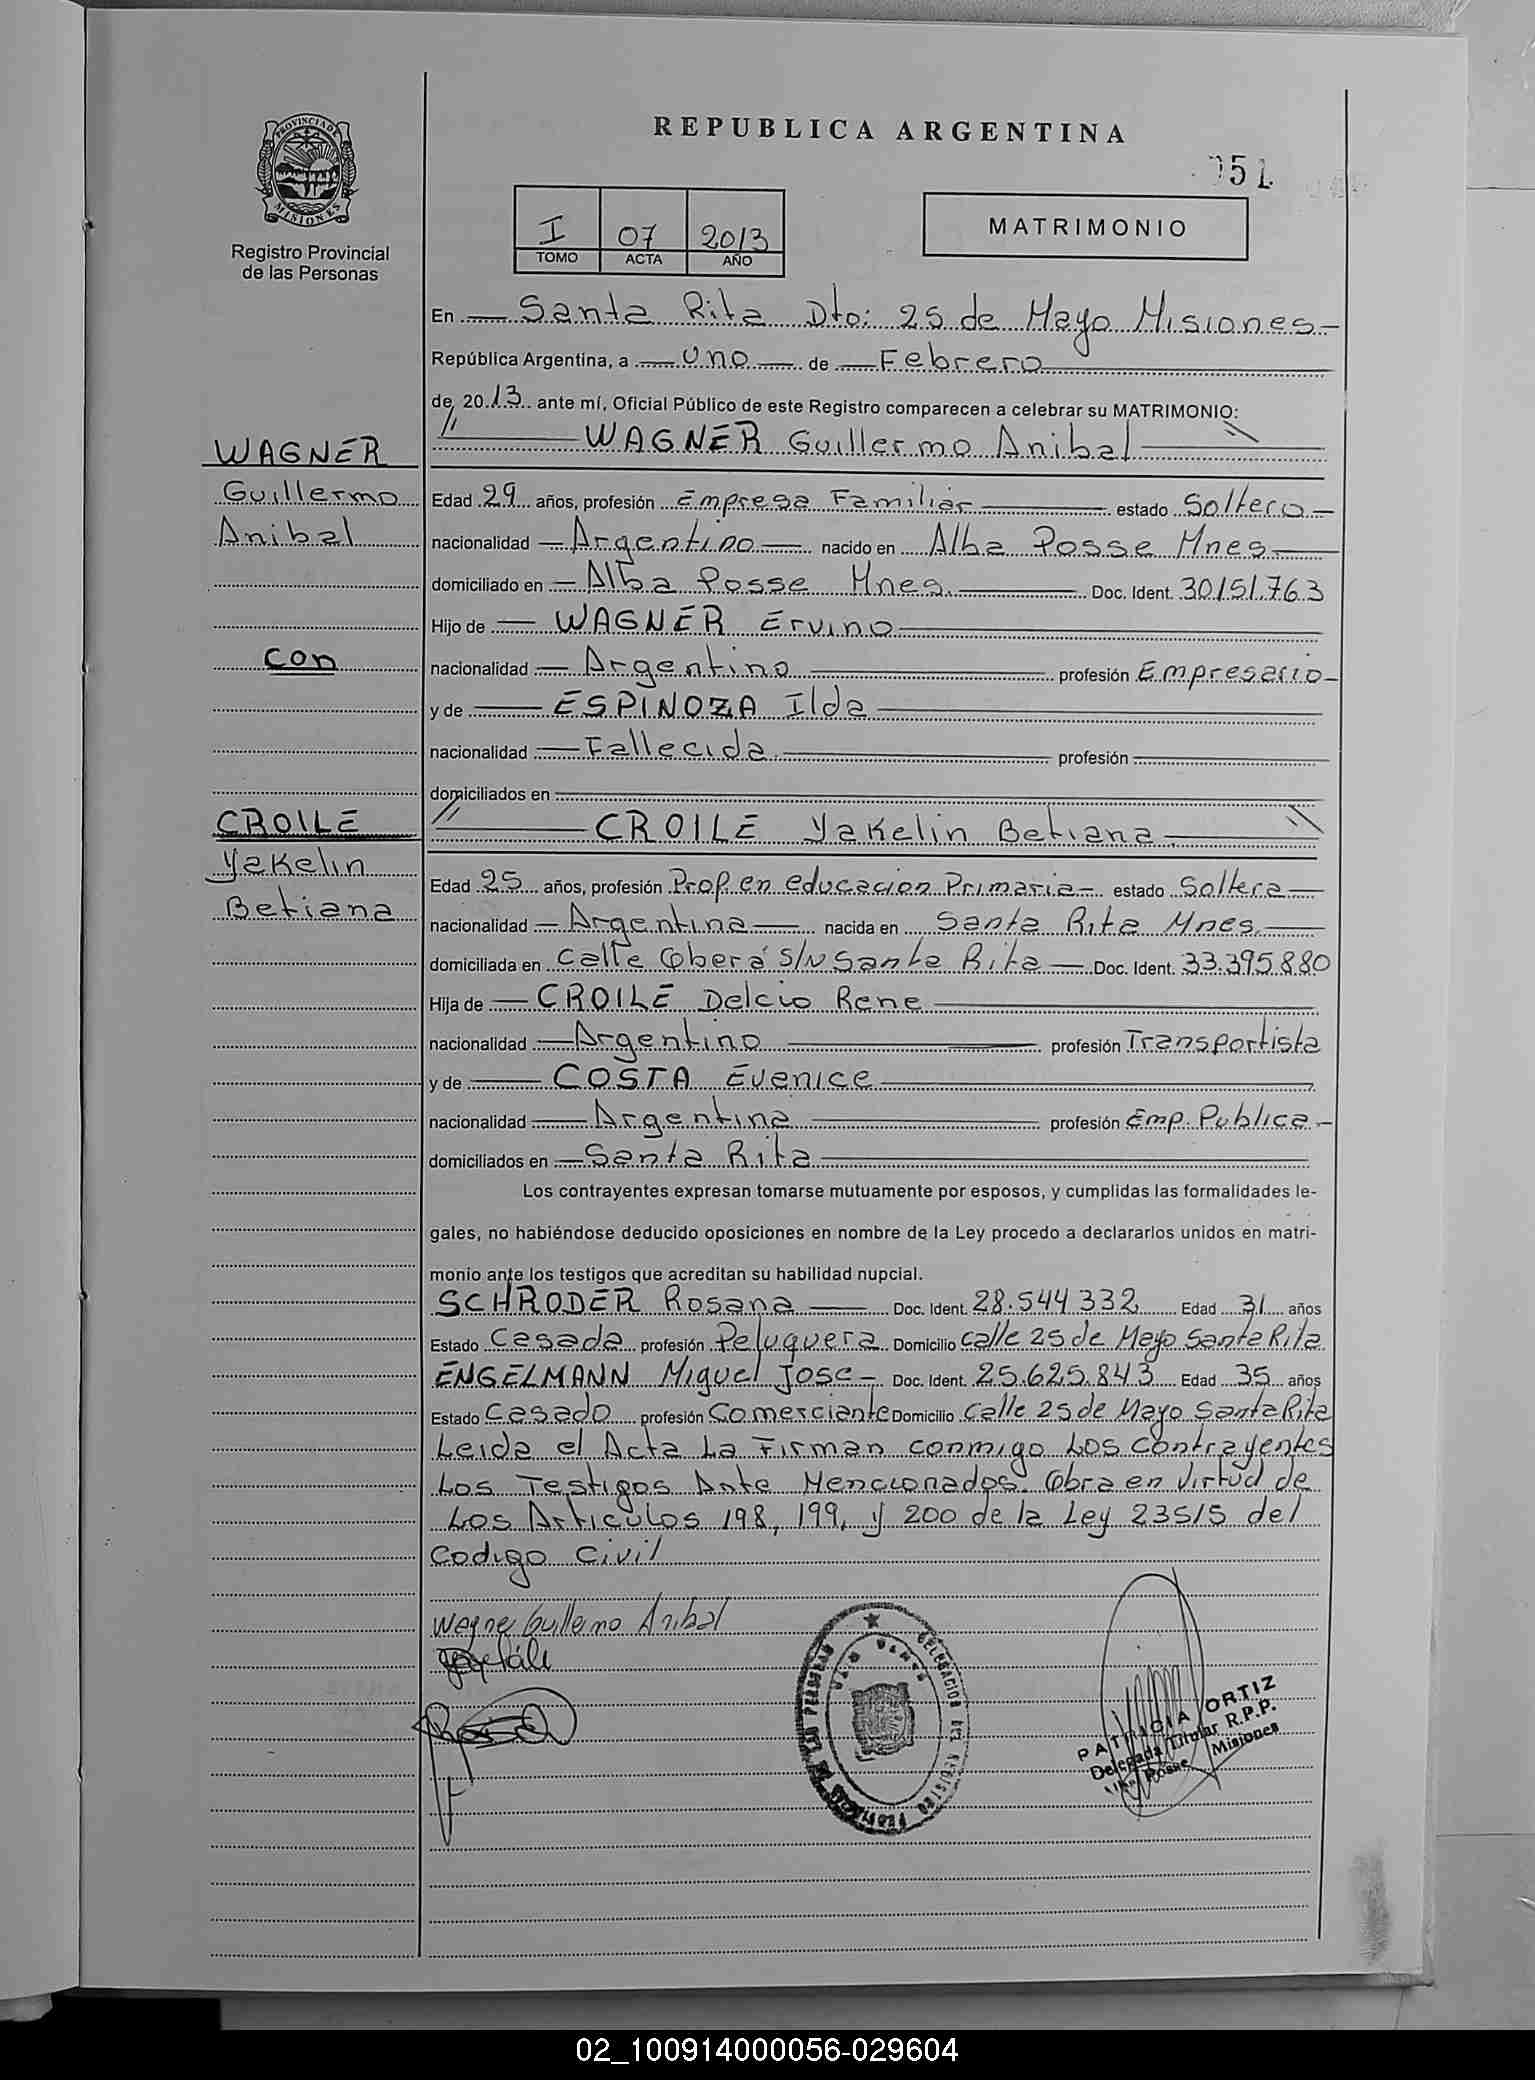 REPUBLICA ARGENTINA
051
PROVINCIA DE MISIONES
Registro Provincial
de las Personas
I 07 2013
TOMO ACTA AÑO
MATRIMONIO
En Santa Rita Dto: 25 de Mayo Misiones
República Argentina, a uno de Febrero
de 2013 ante mí, Oficial Público de este Registro comparecen a celebrar su MATRIMONIO:
WAGNER Guillermo Anibal
WAGNER
Guillermo
Anibal
Edad 29 años, profesión Empresa Familiar estado Soltero
nacionalidad Argentino nacido en Alba Posse Mnes
domiciliado en Alba Posse Mnes. Doc. Ident. 30151.763
Hijo de WAGNER Ervino
con
nacionalidad Argentino profesión Empresario
y de ESPINOZA Ilda
nacionalidad Fallecida profesión
domiciliados en
CROILE Yakelin Betiana
CROILE
Yakelin
Betiana
Edad 25 años, profesión Prof. en educacion Primaria estado Soltera
nacionalidad Argentina nacida en Santa Rita Mnes.
domiciliada en Calle Oberá S/N Santa Rita Doc. Ident. 33.395.880
Hija de CROILE Delcio Rene
nacionalidad Argentino profesión Transportista
y de COSTA Evenice
nacionalidad Argentina profesión Emp. Publica
domiciliados en Santa Rita
Los contrayentes expresan tomarse mutuamente por esposos, y cumplidas las formalidades le-
gales, no habiéndose deducido oposiciones en nombre de la Ley procedo a declararlos unidos en matri-
monio ante los testigos que acreditan su habilidad nupcial.
SCHRODER Rosana Doc. Ident. 28.544 332 Edad 31 años
Estado Casada profesión Peluquera Domicilio calle 25 de Mayo Santa Rita
ENGELMANN Miguel Jose Doc. Ident. 25.625.843 Edad 35 años
Estado Casado profesión Comerciante Domicilio Calle 25 de Mayo Santa Rita
Leida el Acta La Firman conmigo Los contrayentes
Los Testigos Ante Mencionados. Obra en virtud de
Los Articulos 198, 199, y 200 de la Ley 23515 del
Codigo Civil
Wagner Guillermo Anibal
DELEGACION DEL REGISTRO PROVINCIAL DE LAS PERSONAS
SANTA RITA
PATRICIA ORTIZ
Delegada Titular R.P.P.
Alba Posse Misiones
02_100914000056-029604